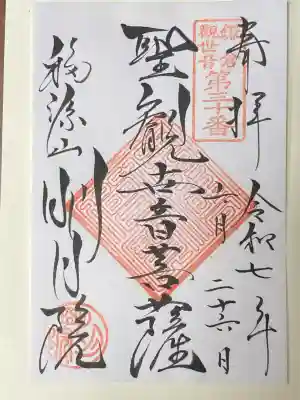 奉拝
令和七年
六月二十六日
鎌倉
観世音
第三十番
聖観世音菩薩
福源山 明月院